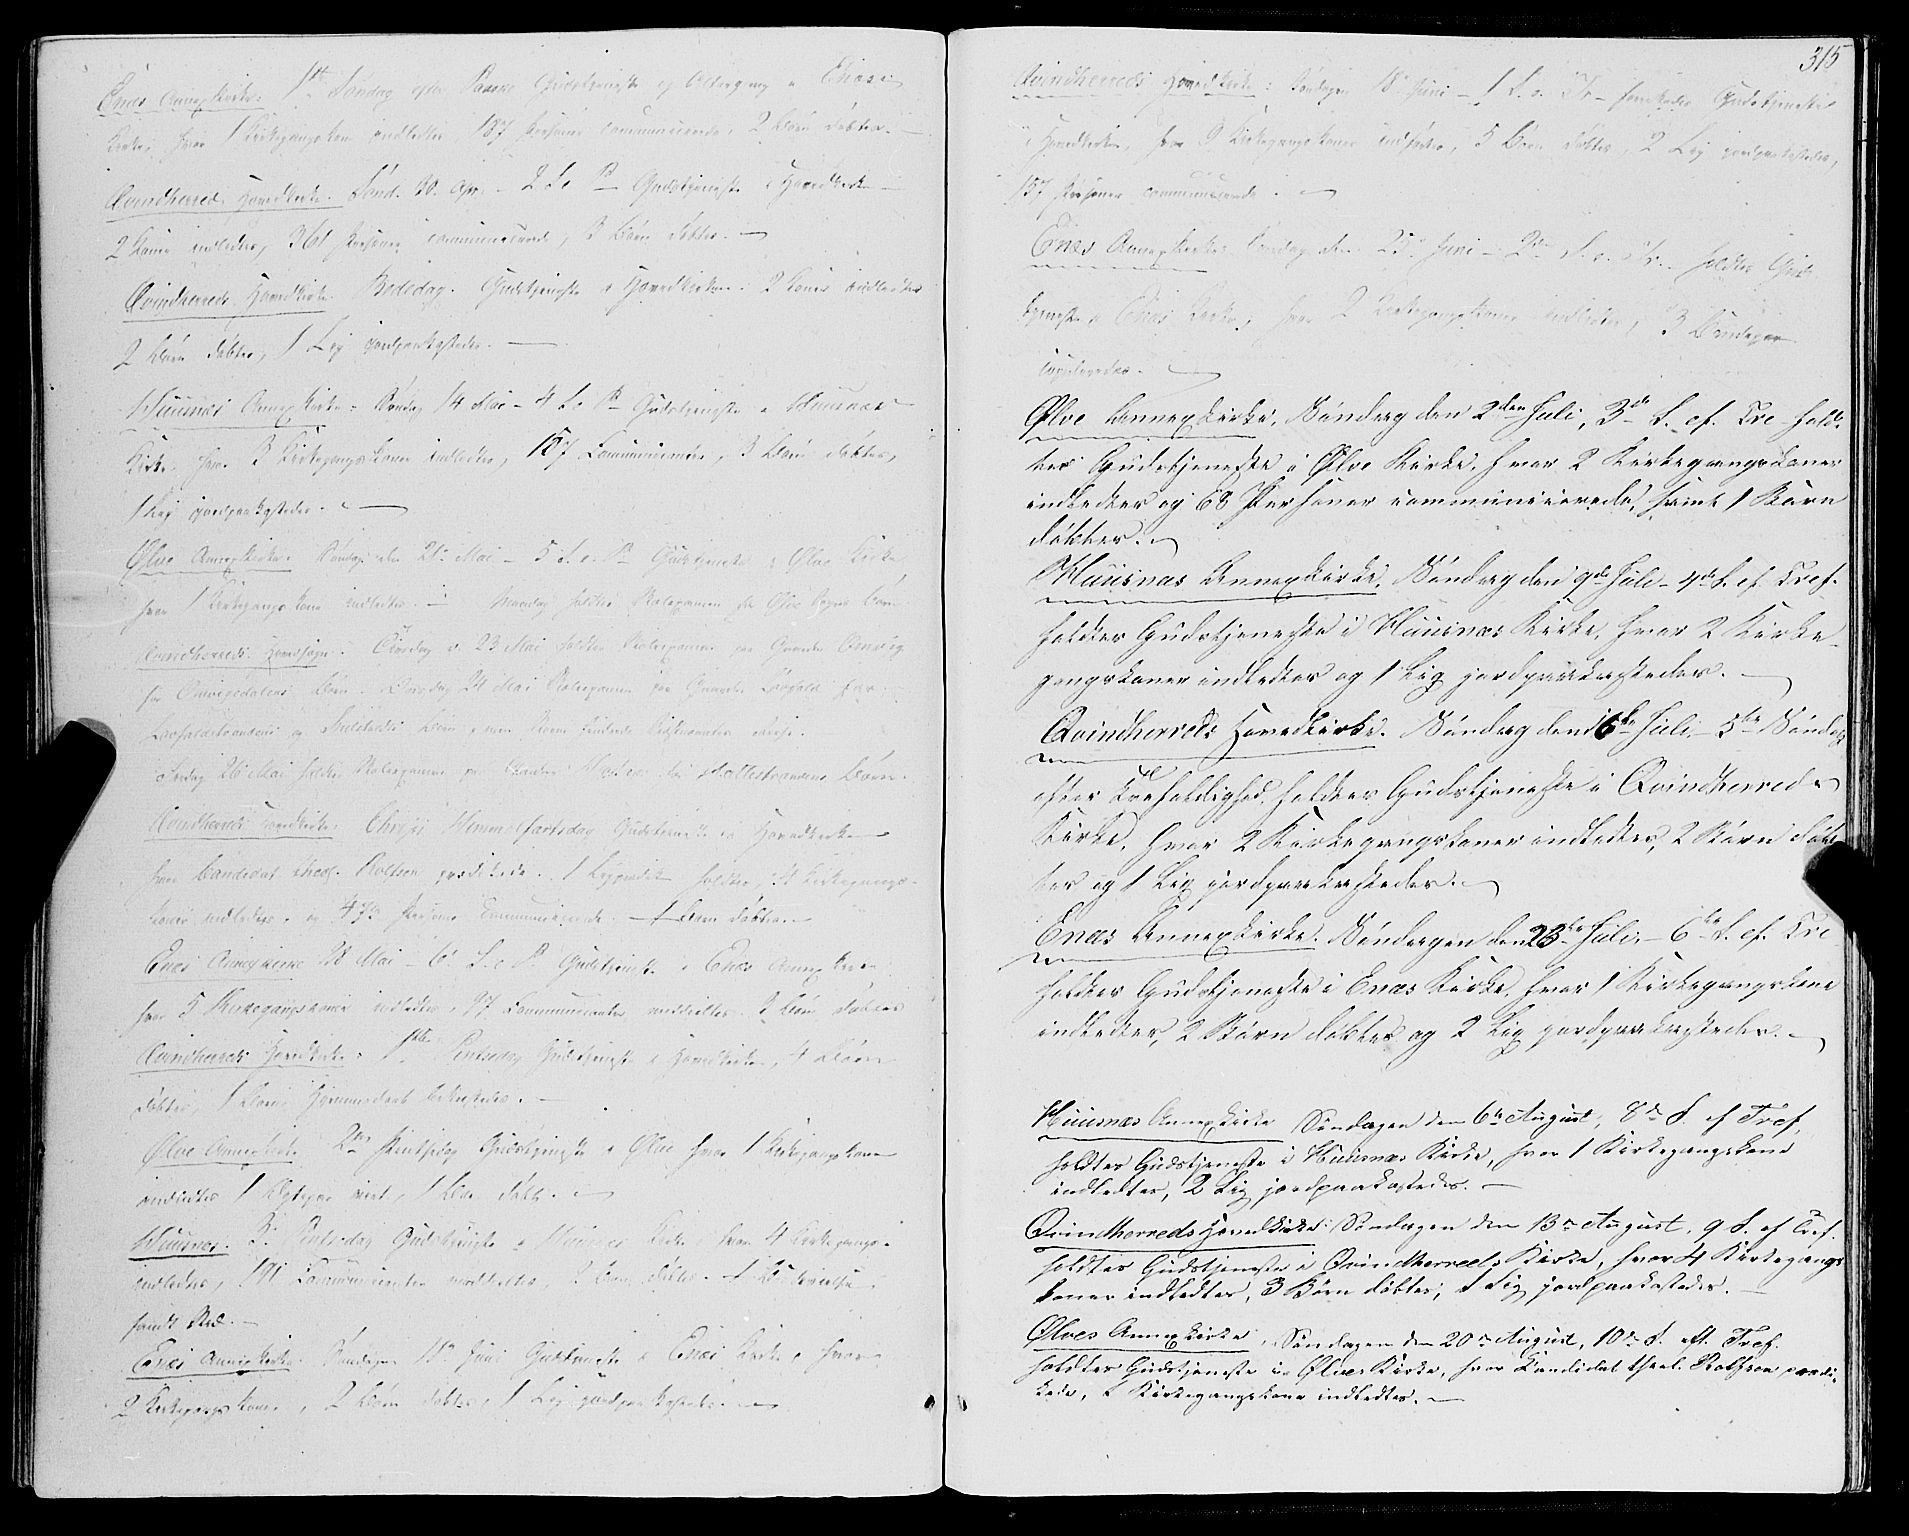 Enæs Annexkirke. 1ste Søndag efter Paaske Gudstjeneste og Altergang i Enæs
Kirke, hvor 1 Kirkegangskone indledtes, 187 Personer communicerede, 2 Børn døbtes. —
Qvindherreds Hovedkirke. Sønd. 30. Apr. – 2 S. e. P. Gudstjeneste i Hovedkirken
2 Koner indledtes, 361 Personer communicerede, 3 Børn døbtes. —
Qvindherreds Hovedkirke. Bededag. Gudstjeneste i Hovedkirken. 2 Koner indledtes
2 Børn døbtes, 1 Lig jordpaakastedes. —
Huusnæs Annexkirke. Søndag 14 Mai – 4 S. e. P. Gudstjeneste i Huusnæs
Kirke, hvor 3 Kirkegangskoner indledtes, 167 Communicanter, 3 Børn døbtes,
1 Lig jordpaakastedes. —
Ølve Annexkirke. Søndag den 21. Mai – 5 S. e. P. Gudstjeneste i Ølve Kirke
hvor 1 Kirkegangskone indledtes. – Mandag holdtes Skoleexamen for Ølve Sogns Børn
Qvindherreds Hovedsogn. Tirsdag d. 23 Mai holdtes Skoleexamen paa Gaarden Omvig
for Omvigdalens Børn. Onsdag 24 Mai Skoleexamen paa Gaarden
Fredag 26 Mai holdtes Skoleexamen paa Gaarden
Qvindherreds Hovedkirke. Christi Himmelfartsdag Gudstjeneste i Hovedkirken
hvor Candidat theol. Rolfsen prædikede. 1 Ligprædiken holdtes, 4 Kirkegangs-
koner indledtes og 473 Personer communicerede. 1 Barn døbtes
Enæs Annexkirke 28 Mai – 6 S. e. P. Gudstjeneste i Enæs Annexkirke
hvor 5 Kirkegangskoner indledtes, 97 Communicanter meddeltes. 3 Børn døbtes
Qvindherreds Hovedkirke. 1ste Pintsedag Gudstjeneste i Hovedkirken, 4 Børn
døbtes, 1 Barns Hjemmedaab bekræftedes. —
Ølve Annexkirke. 2den Pintsedag Gudstjeneste i Ølve hvor 1 Kirkegangskone
indledtes 1 Ægtepar viet, 1 Barn døbt. —
Huusnæs. 3. Pintsedag Gudstjeneste i Huusnæs Kirke hvor 4 Kirkegangs-
indledtes, 191 Communicanter meddeltes, 1 Barn døbtes. 1 Brudevielse
fandt Sted. —
Enæs Annexkirke. Søndagen 11te Juni Gudstjeneste i Enæs Kirke, hvor
2 Kirkegangskoner, 2 Børn døbtes, 1 Lig jordpaakastedes. —
315
Qvindherreds Hovedkirke: Søndagen 18 Juni – 1 S. e. Tr. – holdtes Gudstjeneste
i Hovedkirken, hvor 9 Kirkegangskoner indledtes, 5 Børn døbtes, 2 Lig jordpaakastedes,
157 Personer communicerede. —
Enæs Annexkirke Søndag den 25de Juni – 2den S. e. Tr. holdtes Guds-
tjeneste i Enæs Kirke, hvor 2 Kirkegangskoner indledtes, 3 Brudepar
copuleredes. —
Ølve Annexkirke. Søndag den 2den Juli, 3de S. ef. Tre- hold-
tes Gudstjeneste i Ølve Kirke, hvor 2 Kirkegangskoner
indledtes og 68 Personer communicerede, samt 1 Barn
døbtes. —
Huusnæs Annexkirke. Søndag den 9de Juli – 4de S. ef. Tref.
holdtes Gudstjeneste i Huusnæs Kirke, hvor 2 Kirke-
gangskoner indledtes og 1 Lig jordpaakastedes. —
Qvindherreds Hovedkirke. Søndag den 16de Juli – 5te Søndag
efter Trefoldighed, holdtes Gudstjeneste i Qvindherreds
Kirke, hvor 2 Kirkegangskoner indledtes, 2 Børn døb-
tes og 1 Lig jordpaakastedes. —
Enæs Annexkirke. Søndagen den 23de Juli – 6te S. ef. Tre-
holdtes Gudstjeneste i Enæs Kirke, hvor 1 Kirkegangskone
indledtes, 2 Børn døbtes og 2 Lig jordpaakastedes. —
Huusnæs Annexkirke Søndagen den 6te August, 8de S. ef Tref.
holdtes Gudstjeneste i Huusnæs Kirke, hvor 1 Kirkegangskone
indledtes, 2 Lig jordpaakastedes. —
Qvindherreds Hovedkirke: Søndagen den 13de August, 9 S. ef Tref.
holdtes Gudstjeneste i Qvindherreds Kirke, hvor 4 Kirkegangs
koner indledtes, 3 Børn døbtes, 1 Lig jordpaakastedes. —
Ølves Annexkirke, Søndagen den 20de August, 10de S. eft. Tref.
holdtes Gudstjeneste i Ølves Kirke, hvor Candidat theol. Rolfsen prædi-
kede, 2 Kirkegangskone indledtes. —